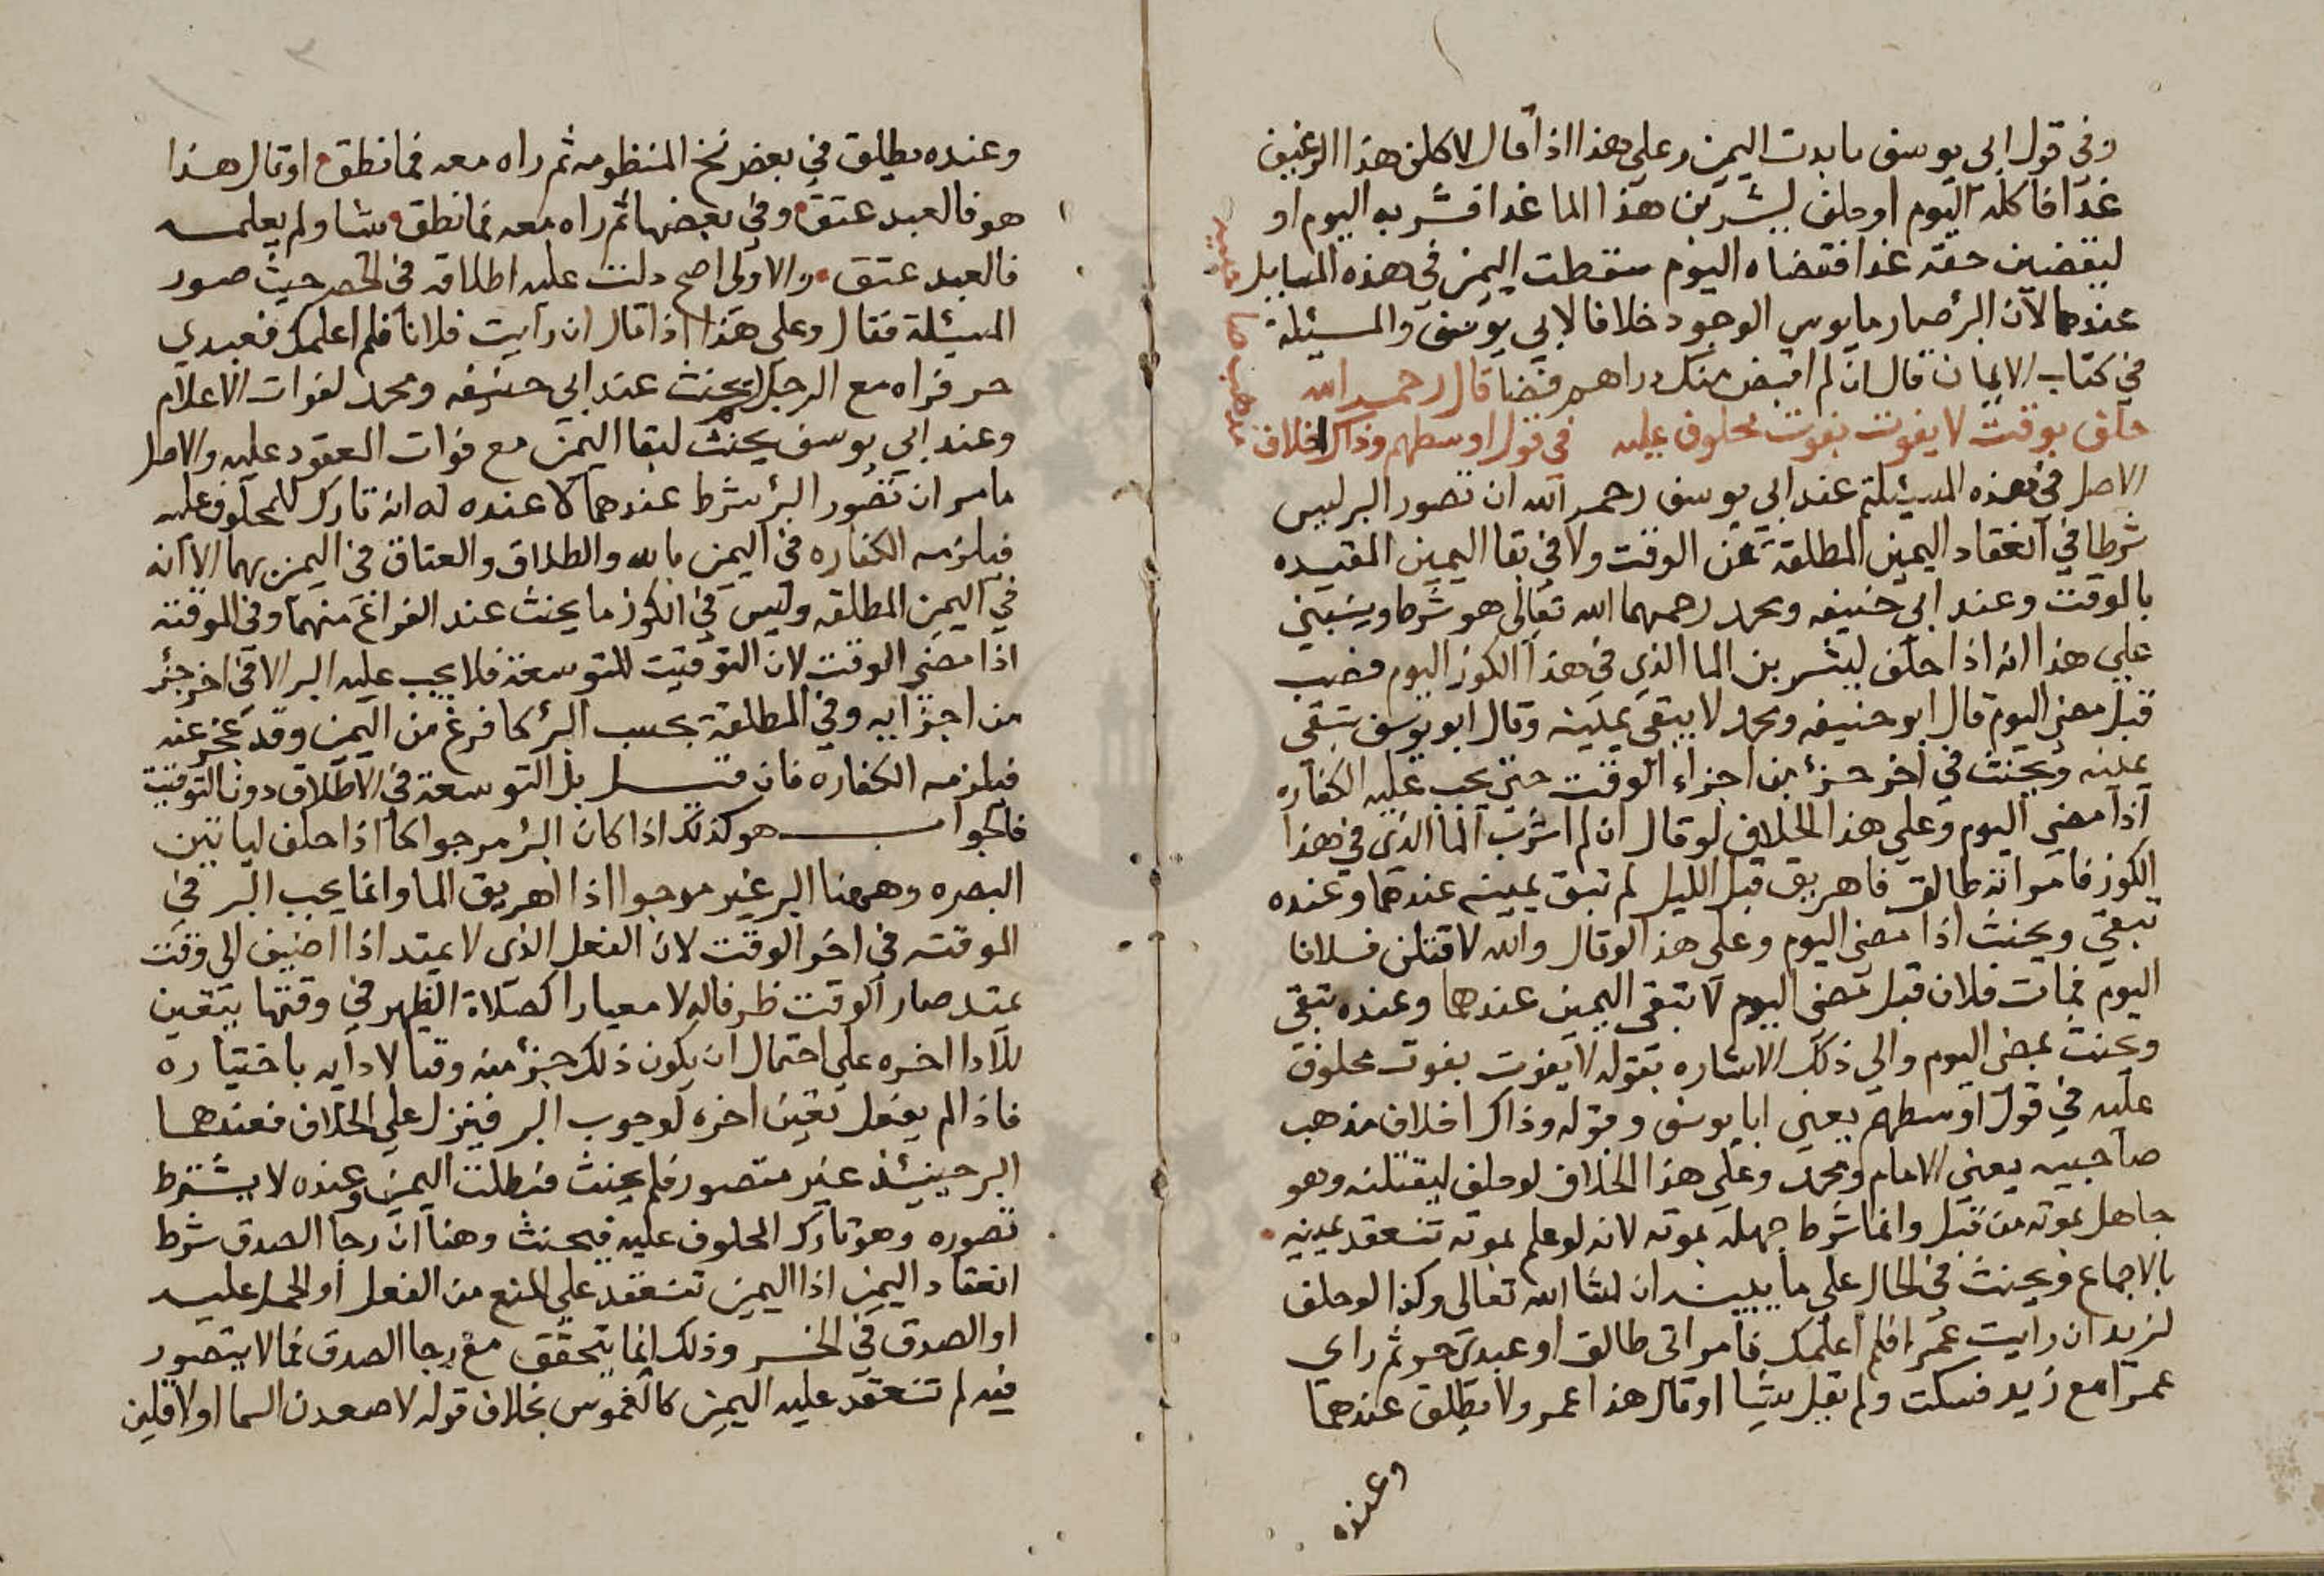 وفي قول ابي يوسف ما بدت اليمين وعلى هذا اذا قال لاكلن هذا الرغيف
غدا فاكله اليوم او حلف ليشربن هذا الما غدا فشربه اليوم او
ليقضين حقه غدا فقضاه اليوم سقطت اليمين في هذه المسايل
عندهما لان البر صار مايوس الوجود خلافا لابي يوسف والمسئلة
في كتاب الايمان قال ان لم اقبض منك دراهم قضا قال رحمه الله
حلف بوقت لا يفوت بفوت محلوف عليه في قول اوسطهم وذاكرا خلاف
مذهب صاحبيه
الاصل في هذه المسئلة عند ابي يوسف رحمه الله ان تصور البر ليس
شرطا في انعقاد اليمين المطلقة عن الوقت ولا في بقا اليمين المقيده
بالوقت وعند ابي حنيفه ومحمد رحمهما الله تعالى هو شرط ويبتني
على هذا انه اذا حلف ليشربن الما الذي في هذا الكوز اليوم فصب
قبل مضي اليوم قال ابو حنيفه ومحمد لا يبقى يمينه وقال ابو يوسف تبقى
يمينه ويحنث في اخر جزء من اجزاء الوقت حتى يجب عليه الكفاره
اذا مضى اليوم وعلى هذا الخلاف لو قال ان لم اشرب الما الذي في هذا
الكوز فامراته طالق فاهريق قبل الليل لم تبق يمينه عندهما وعنده
تبقى ويحنث اذا مضى اليوم وعلى هذا لو قال والله لاقتلن فلانا
اليوم فمات فلان قبل مضي اليوم لا تبقى اليمين عندهما وعنده تبقى
ويحنث بمضي اليوم والى ذلك الاشاره بقوله لا يفوت بفوت محلوف
عليه في قول اوسطهم يعني ابا يوسف وقوله وذاكرا خلاف مذهب
صاحبيه يعني الامام ومحمد وعلى هذا الخلاف لو حلف ليقتلنه وهو
جاهل بموته من قبل وانما شرط جهله بموته لانه لو علم بموته تنعقد يمينه
بالاجماع ويحنث في الحال على ما يبين ان شا الله تعالى وكذا لو حلف
لزيد ان رايت عمرا فلم اعلمك فامراتي طالق او عبدي حر ثم راى
عمرا مع زيد فسكت ولم يقل شيا او قال هذا عمر ولا يطلق عندهما
وعنده
وعنده يطلق في بعض نسخ المنظومه ثم راه معه فما نطق او قال هذا
هو فالعبد عتق وفي بعضها ثم راه معه فما نطق شا ولم يعلمه
فالعبد عتق والاولى اصح دلت عليه اطلاقه في الحصر حيث صور
المسئلة فقال وعلى هذا اذا قال ان رايت فلانا فلم اعلمك فعبدي
حر فراه مع الرجل لم يحنث عند ابي حنيفه ومحمد لفوات الاعلام
وعند ابي يوسف يحنث لبقا اليمين مع فوات العقود عليه والاصل
ما مر ان تصور البر شرط عندهما لا عنده له انه تارك للمحلوف عليه
فيلزمه الكفاره في اليمين بالله والطلاق والعتاق في اليمين بهما الا انه
في اليمين المطلقه وليس في الكوز ما يحنث عند الفراغ منهما وفي الموقتة
اذا مضى الوقت لان التوقيت للتوسعة فلا يجب عليه البر الا في اخر جزء
من اجزايه وفي المطلقة يجب البر كما فرغ من اليمين وقد عجز عنه
فيلزمه الكفاره فان قيل بل التوسعة في الاطلاق دون التوقيت
فالجواب هو كذلك اذا كان البر مرجوا كما اذا حلف لياتين
البصره وههنا البر غير مرجوا اذا اهريق الما وانما يجب البر في
الموقته في اخر الوقت لان الفعل الذي لا يمتد اذا اضيف الى وقت
يمتد صار الوقت ظرفا له لا معيارا كصلاة الظهر في وقتها يتعين
للادا اخره على احتمال ان يكون ذلك جزء منه وقتا لادايه باختياره
فاذا لم يفعل تعين اخره لوجوب البر فينزل على الخلاف فعندهما
البر حينئذ غير متصور فلم يحنث فبطلت اليمين وعنده لا يشترط
تصوره وهو تارك المحلوف عليه فيحنث وهنا ان رجا الصدق شرط
انعقاد اليمين اذا اليمين تنعقد على المنع من الفعل او الحمل عليه
او الصدق في الخبر وذلك انما يتحقق مع رجا الصدق فما لا يتصور
فيه لم تنعقد عليه اليمين كالغموس بخلاف قوله لاصعدن السما او لاقلبن